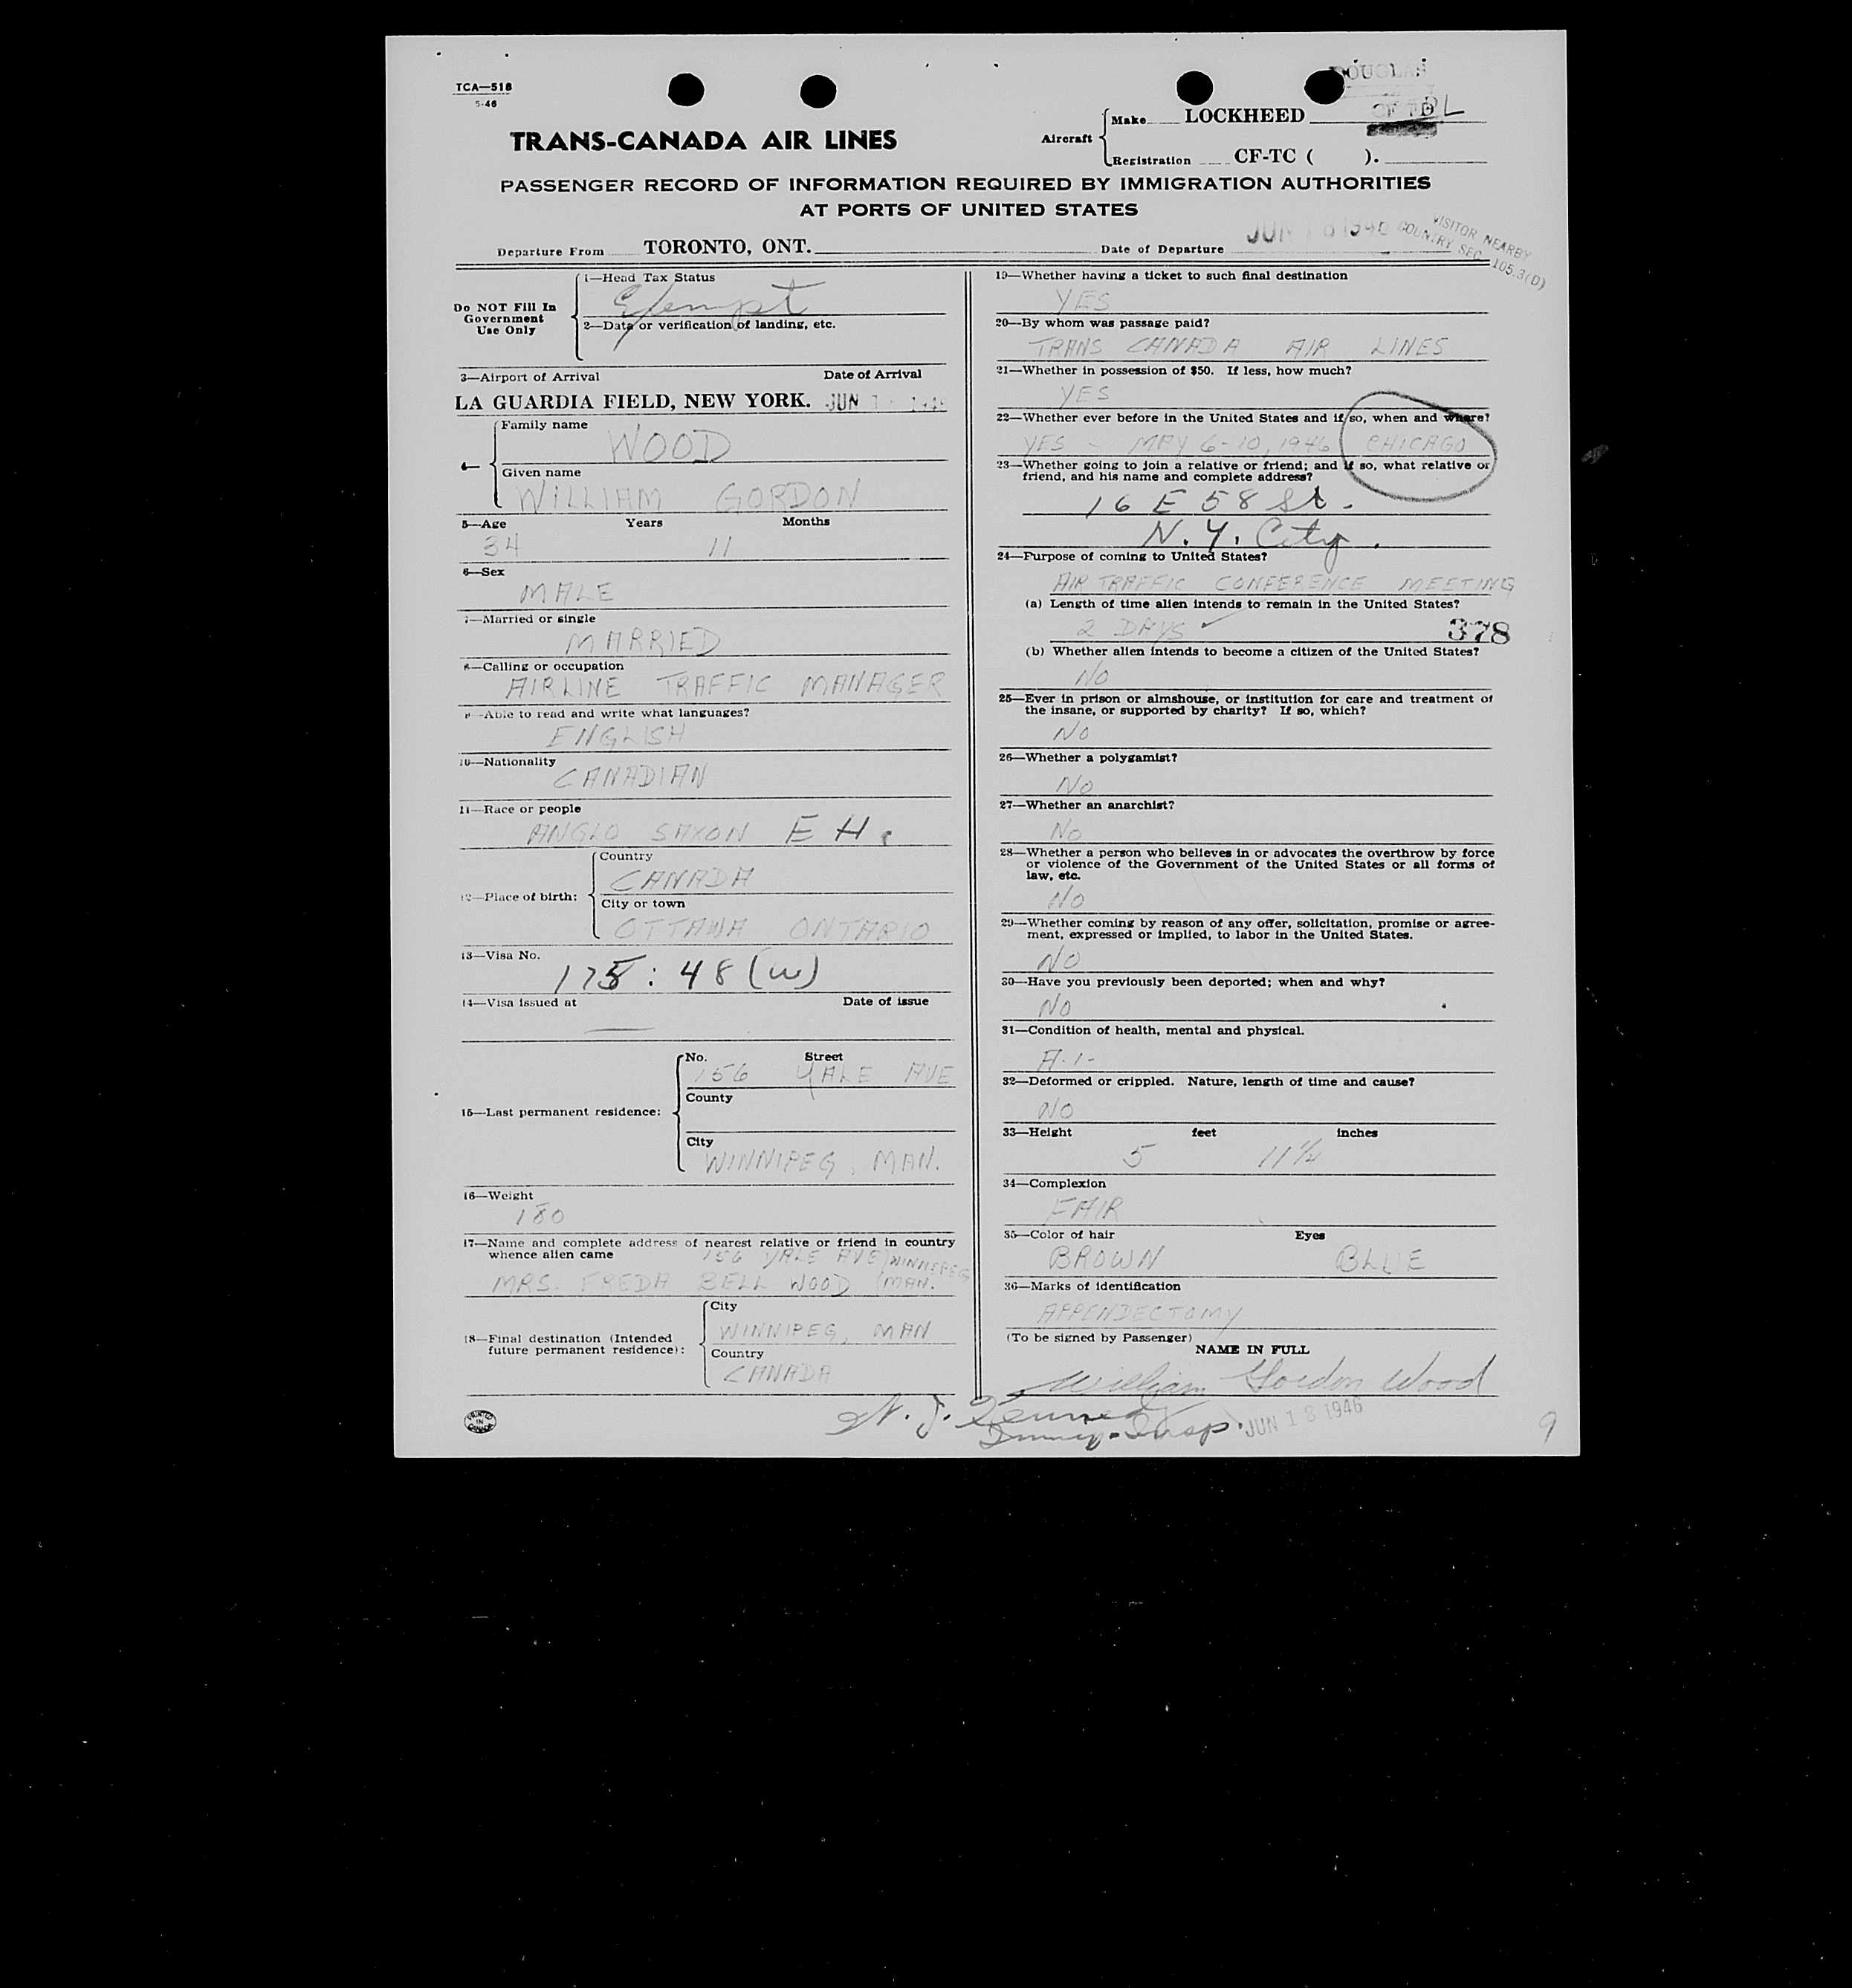 TCA—518
5-46
DOUGLAS
TRANS-CANADA AIR LINES
Aircraft
Make LOCKHEED
Registration CF-TC ( ).
PASSENGER RECORD OF INFORMATION REQUIRED BY IMMIGRATION AUTHORITIES
AT PORTS OF UNITED STATES
Departure From TORONTO, ONT. Date of Departure JUN 18 1946
VISITOR NEARBY
COUNTRY SEC 105.3(D)
Do NOT Fill In
Government
Use Only
1—Head Tax Status
Exempt
2—Data or verification of landing, etc.
3—Airport of Arrival Date of Arrival
LA GUARDIA FIELD, NEW YORK. JUN 1 1946
4—
Family name
WOOD
Given name
WILLIAM GORDON
5—Age Years Months
34 11
6—Sex
MALE
7—Married or single
MARRIED
8—Calling or occupation
AIRLINE TRAFFIC MANAGER
9—Able to read and write what languages?
ENGLISH
10—Nationality
CANADIAN
11—Race or people
ANGLO SAXON E H.
12—Place of birth:
Country
CANADA
City or town
OTTAWA ONTARIO
13—Visa No.
175: 48 (w)
14—Visa issued at Date of issue
15—Last permanent residence:
No. Street
156 YALE AVE
County
City
WINNIPEG, MAN.
16—Weight
180
17—Name and complete address of nearest relative or friend in country
whence alien came 156 YALE AVE WINNIPEG
MRS. FREDA BELL WOOD MAN.
18—Final destination (Intended
future permanent residence):
City
WINNIPEG, MAN
Country
CANADA
PRINTED IN CANADA
19—Whether having a ticket to such final destination
YES
20—By whom was passage paid?
TRANS CANADA AIR LINES
21—Whether in possession of $50. If less, how much?
YES
22—Whether ever before in the United States and if so, when and where?
YES - MAY 6-10, 1946 CHICAGO
23—Whether going to join a relative or friend; and if so, what relative or
friend, and his name and complete address?
16 E 58 St.
N. Y. City.
24—Purpose of coming to United States?
AIR TRAFFIC CONFERENCE MEETING
(a) Length of time alien intends to remain in the United States?
2 DAYS ✓ 378
(b) Whether alien intends to become a citizen of the United States?
NO
25—Ever in prison or almshouse, or institution for care and treatment of
the insane, or supported by charity? If so, which?
NO
26—Whether a polygamist?
NO
27—Whether an anarchist?
NO
28—Whether a person who believes in or advocates the overthrow by force
or violence of the Government of the United States or all forms of
law, etc.
NO
29—Whether coming by reason of any offer, solicitation, promise or agree-
ment, expressed or implied, to labor in the United States.
NO
30—Have you previously been deported; when and why?
NO
31—Condition of health, mental and physical.
A-1-
32—Deformed or crippled. Nature, length of time and cause?
NO
33—Height feet inches
5 11 1/4
34—Complexion
FAIR
35—Color of hair Eyes
BROWN BLUE
36—Marks of identification
APPENDECTOMY
(To be signed by Passenger)
NAME IN FULL
William Gordon Wood
Immig. Insp. JUN 18 1946
9